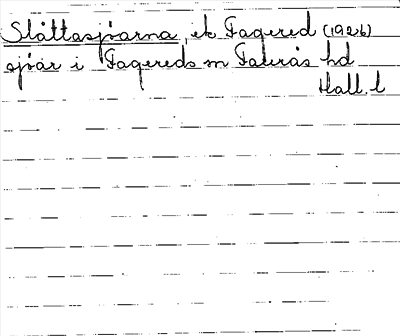 Slåttasjöarna ek Fagered (1926)
sjöar i Fagereds sn Faurås hd
Hall. l